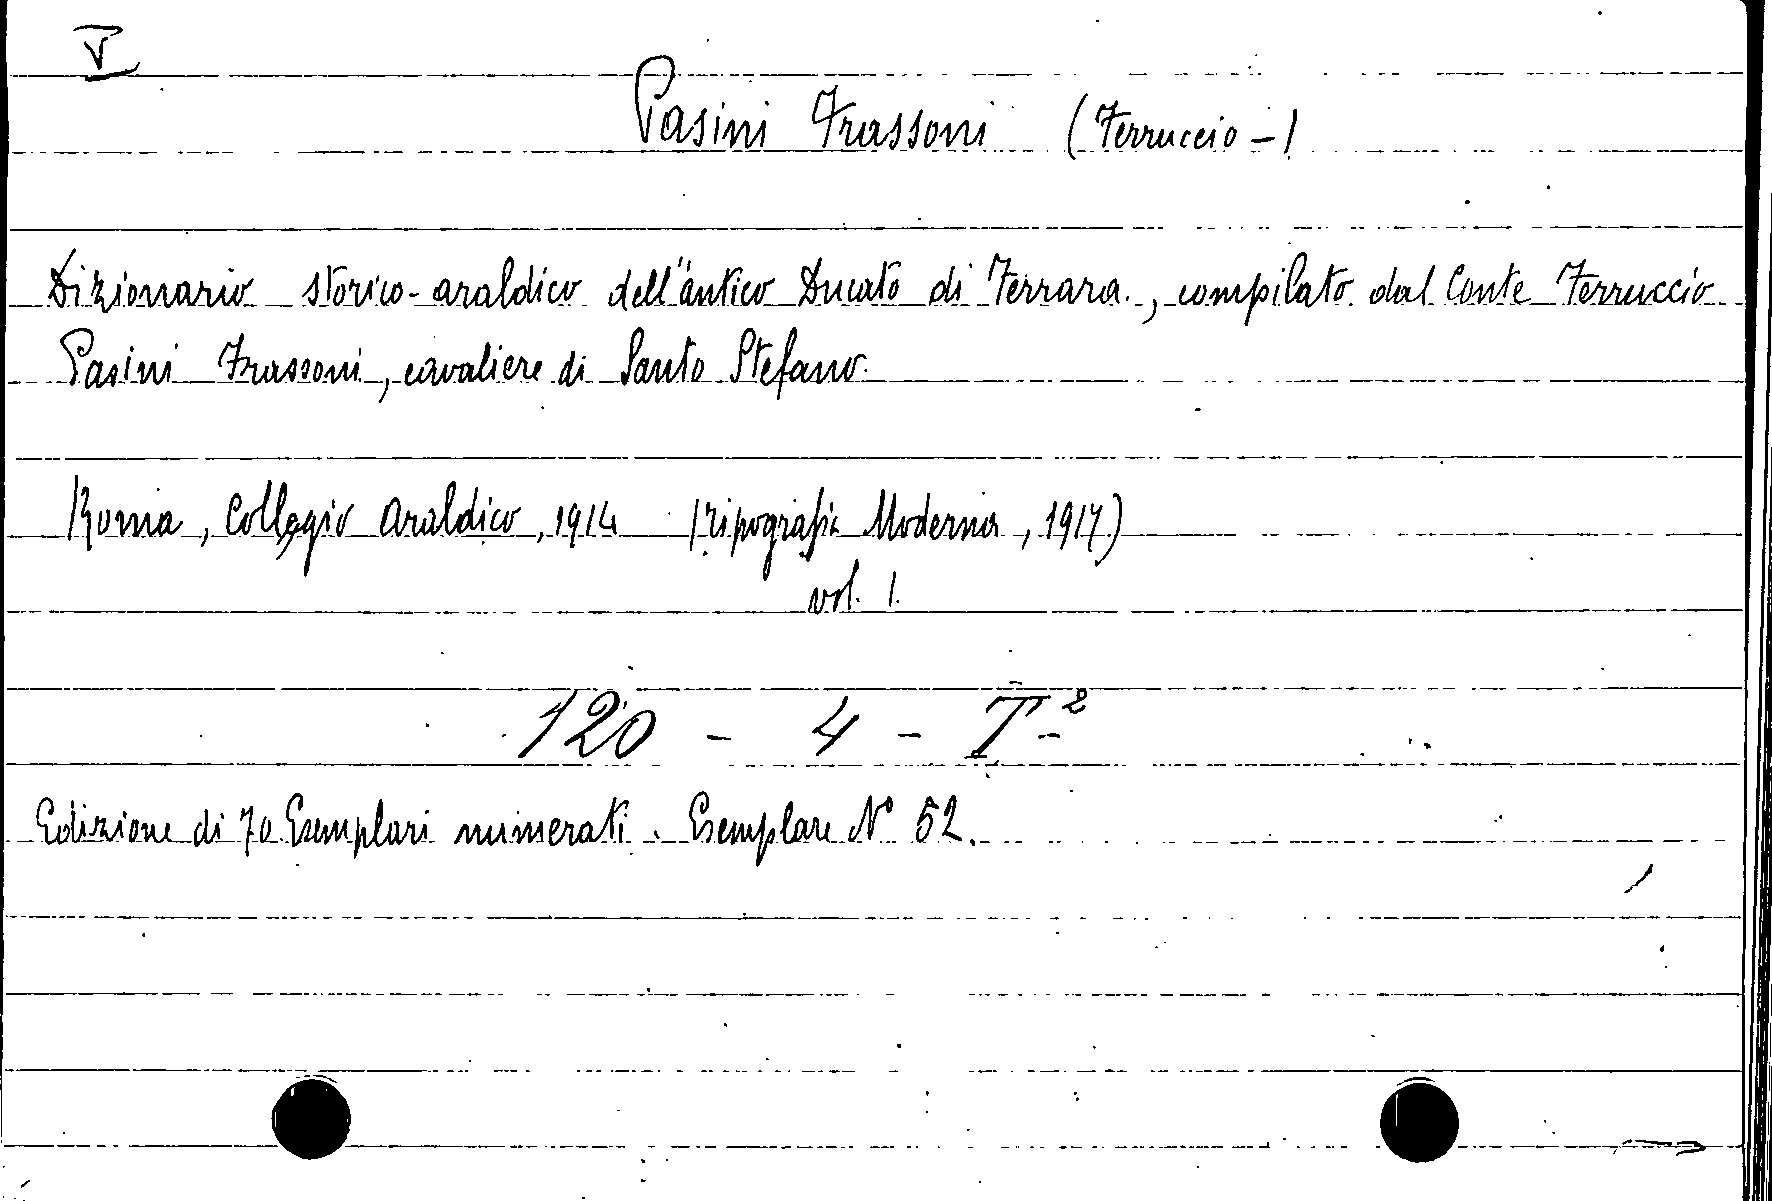 V
Pasini Frassoni (Ferruccio -)
Dizionario storico-araldico dell'antico Ducato di Ferrara., compilato dal Conte Ferruccio
Pasini Frassoni, cavaliere di Santo Stefano.
Roma, Collegio Araldico, 1914 (Tipografia Moderna, 1917)
vol. 1.
120 - 4 - I²-
Edizione di 70 Esemplari numerati. Esemplare N° 52.